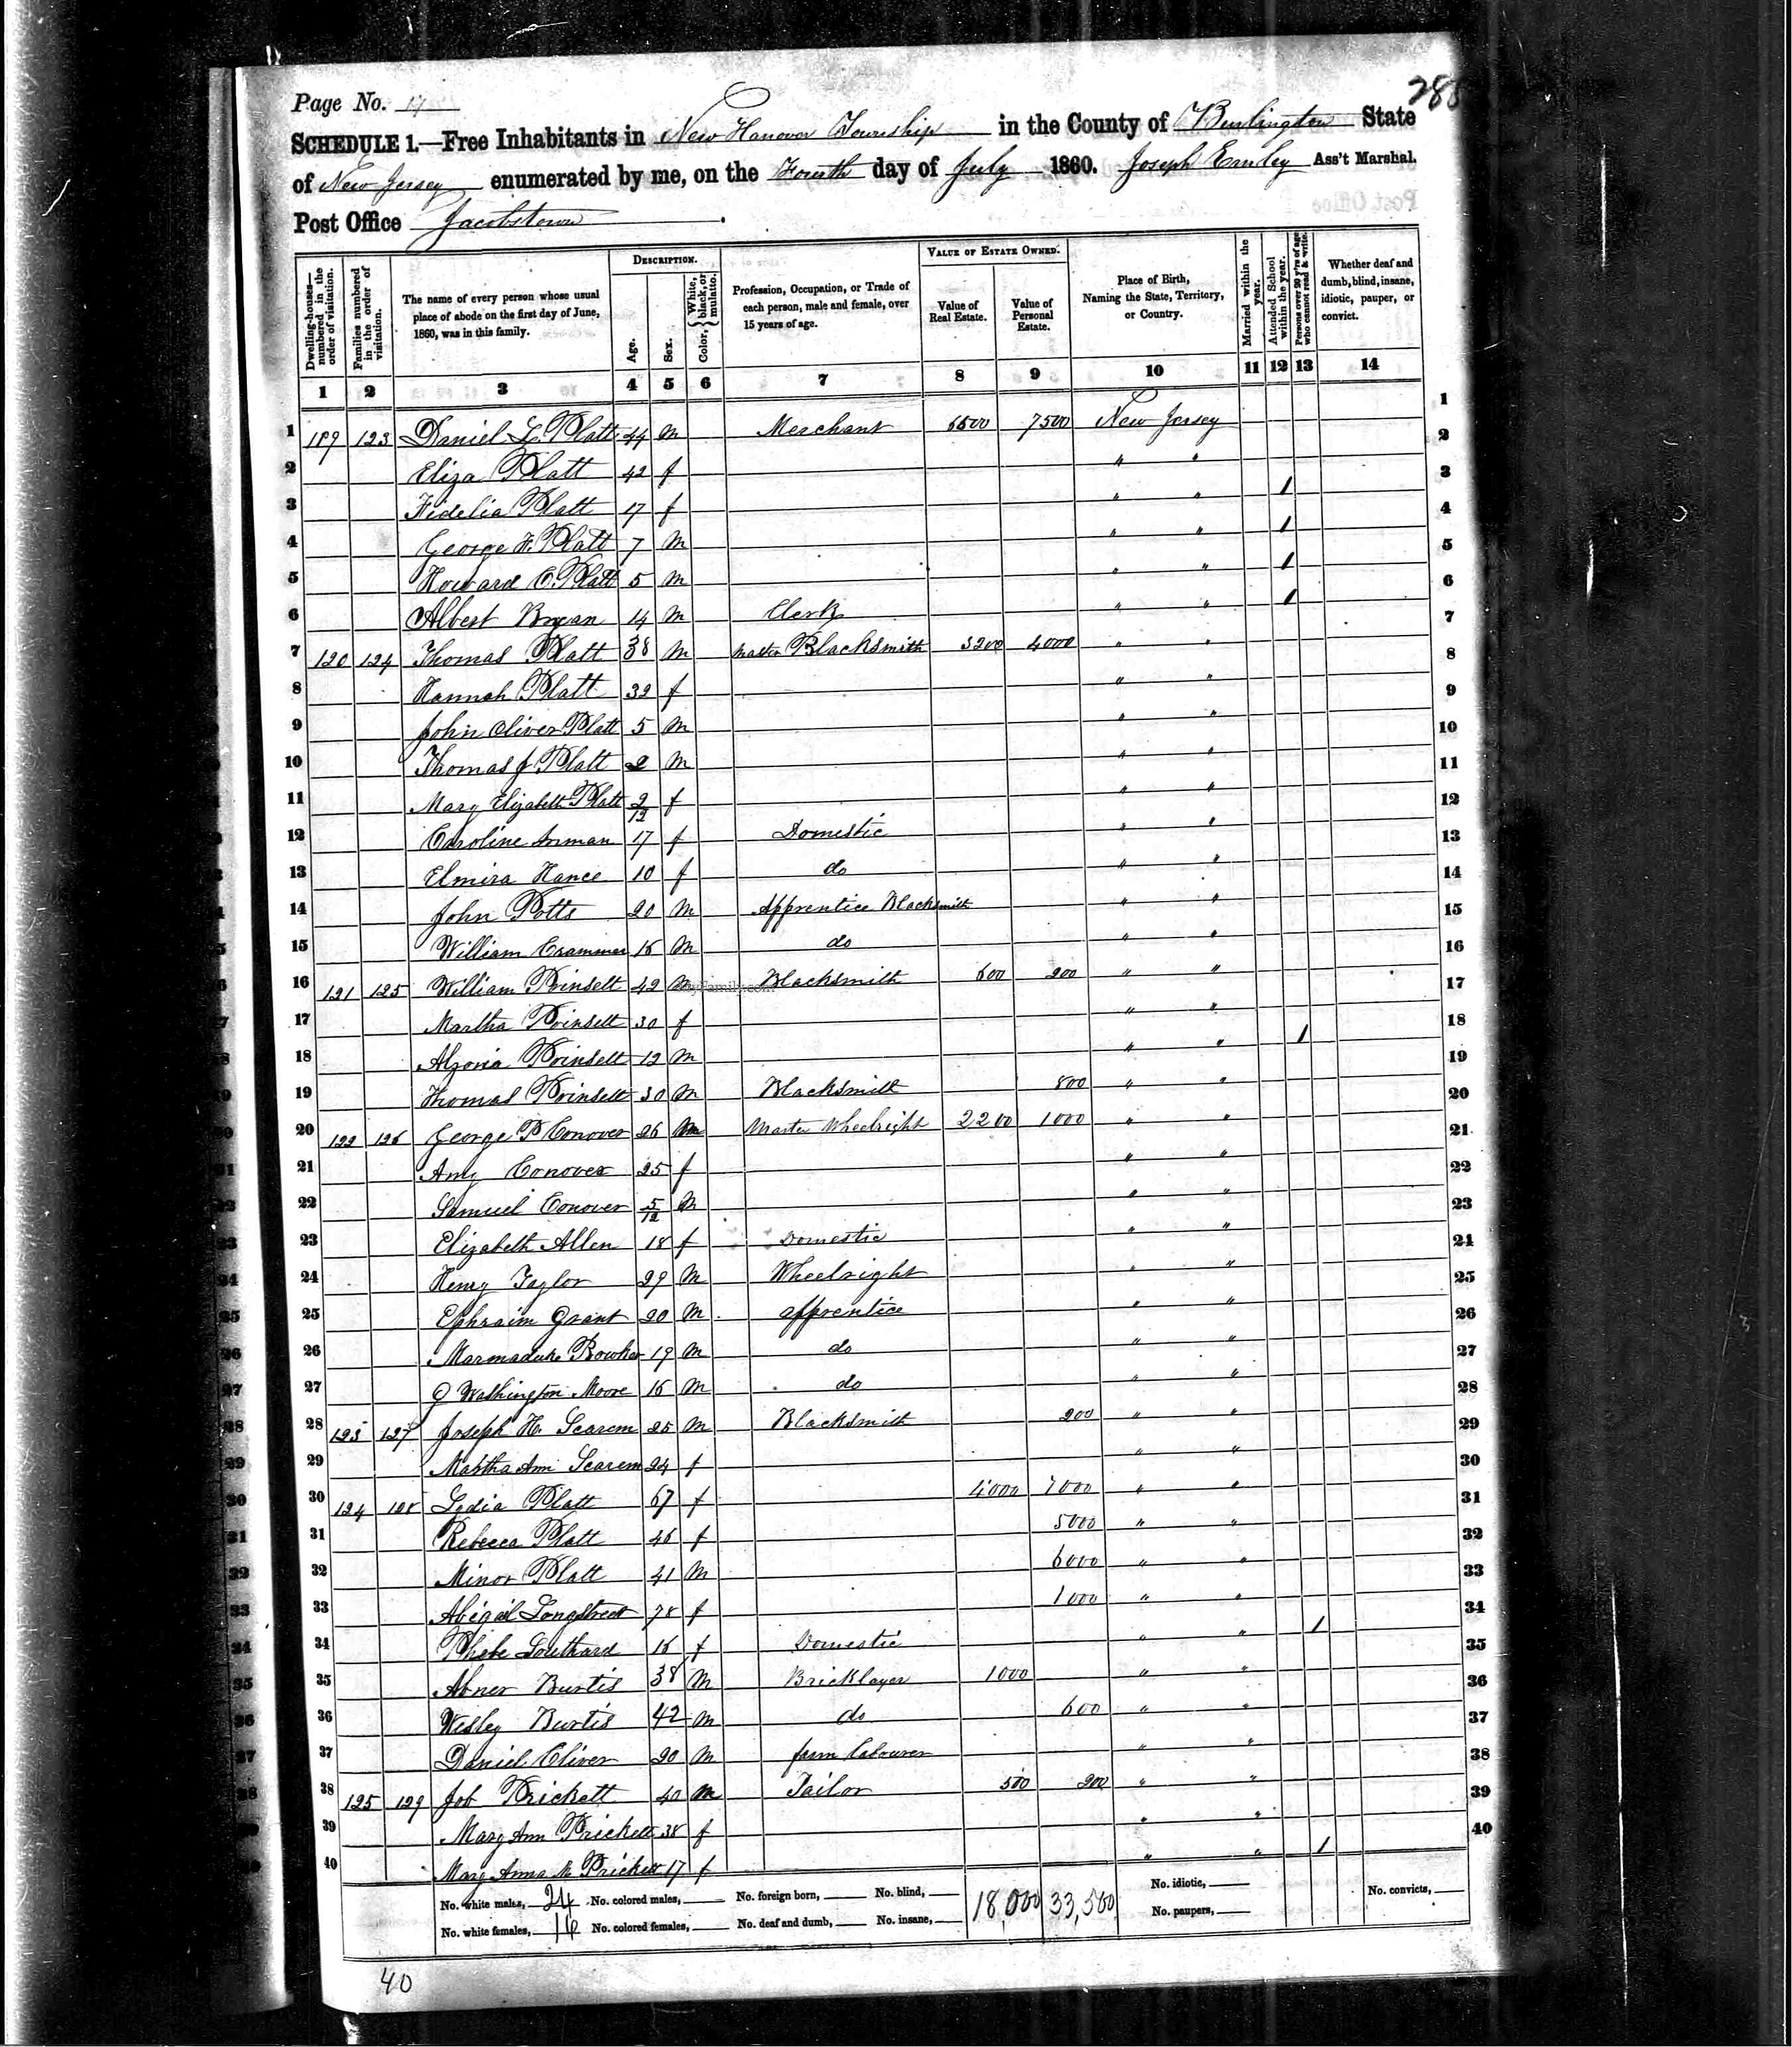 285
Page No. 17
SCHEDULE 1.—Free Inhabitants in New Hanover Township in the County of Burlington State
of New Jersey enumerated by me, on the Fourth day of July 1860. Joseph Emley Ass't Marshal.
Post Office Jacobstown.
Dwelling-houses—numbered in the order of visitation.
Families numbered in the order of visitation.
The name of every person whose usual place of abode on the first day of June, 1860, was in this family.
DESCRIPTION.
Age.
Sex.
Color, { White, black, or mulatto.
Profession, Occupation, or Trade of each person, male and female, over 15 years of age.
VALUE OF ESTATE OWNED.
Value of Real Estate.
Value of Personal Estate.
Place of Birth, Naming the State, Territory, or Country.
Married within the year.
Attended School within the year.
Persons over 20 y'rs of age who cannot read & write.
Whether deaf and dumb, blind, insane, idiotic, pauper, or convict.
1 2 3 4 5 6 7 8 9 10 11 12 13 14
1 189 123 Daniel L. Platt 44 m Merchant 6500 7500 New Jersey
2 Eliza Platt 42 f " "
3 Fidelia Platt 17 f " " 1
4 George H. Platt 7 m " " 1
5 Howard C. Platt 5 m " " 1
6 Albert Bryan 14 m Clerk " " 1
7 120 124 Thomas Platt 38 m Master Blacksmith 3200 4000 " "
8 Hannah Platt 32 f " "
9 John Oliver Platt 5 m " "
10 Thomas J Platt 2 m " "
11 Mary Elizabeth Platt 2/12 f " "
12 Caroline Inman 17 f Domestic " "
13 Elmira Hance 10 f do " "
14 John Potts 20 m Apprentice Blacksmith " "
15 William Crammer 16 m do " "
16 121 125 William Poinsett 42 m Blacksmith 600 200 " "
17 Martha Poinsett 30 f " "
18 Poinsett 12 m " " 1
19 Thomas Poinsett 30 m Blacksmith 800 " "
20 122 126 George P Conover 26 m Master Wheelright 2200 1000 " "
21 Amy Conover 25 f " "
22 Samuel Conover 5/12 m " "
23 Elizabeth Allen 18 f Domestic " "
24 Henry Taylor 29 m Wheelright " "
25 Ephraim Grant 20 m apprentice " "
26 Marmaduke Bowker 19 m do " "
27 G Washington Moore 16 m do " "
28 123 127 Joseph H. Scarem 25 m Blacksmith 200 " "
29 Martha Ann Scarem 24 f " "
30 124 128 Lydia Platt 67 f 4000 7000 " "
31 Rebecca Platt 46 f 5000 " "
32 Minor Platt 41 m 6000 " "
33 Abigail Longstreet 78 f 1000 " "
34 Phebe Southard 16 f Domestic " " 1
35 Abner Burtis 38 m Bricklayer 1000 " "
36 Wesley Burtis 42 m do 600 " "
37 Daniel Oliver 20 m farm labourer " "
38 125 129 Job Prickett 40 m Tailor 500 200 " "
39 Mary Ann Prickett 38 f " "
40 Mary Anna M Prickett 17 f " " 1
No. white males, 24 No. colored males, No. foreign born, No. blind, 18,000 33,500 No. idiotic, No. convicts,
No. white females, 16 No. colored females, No. deaf and dumb, No. insane, No. paupers,
40